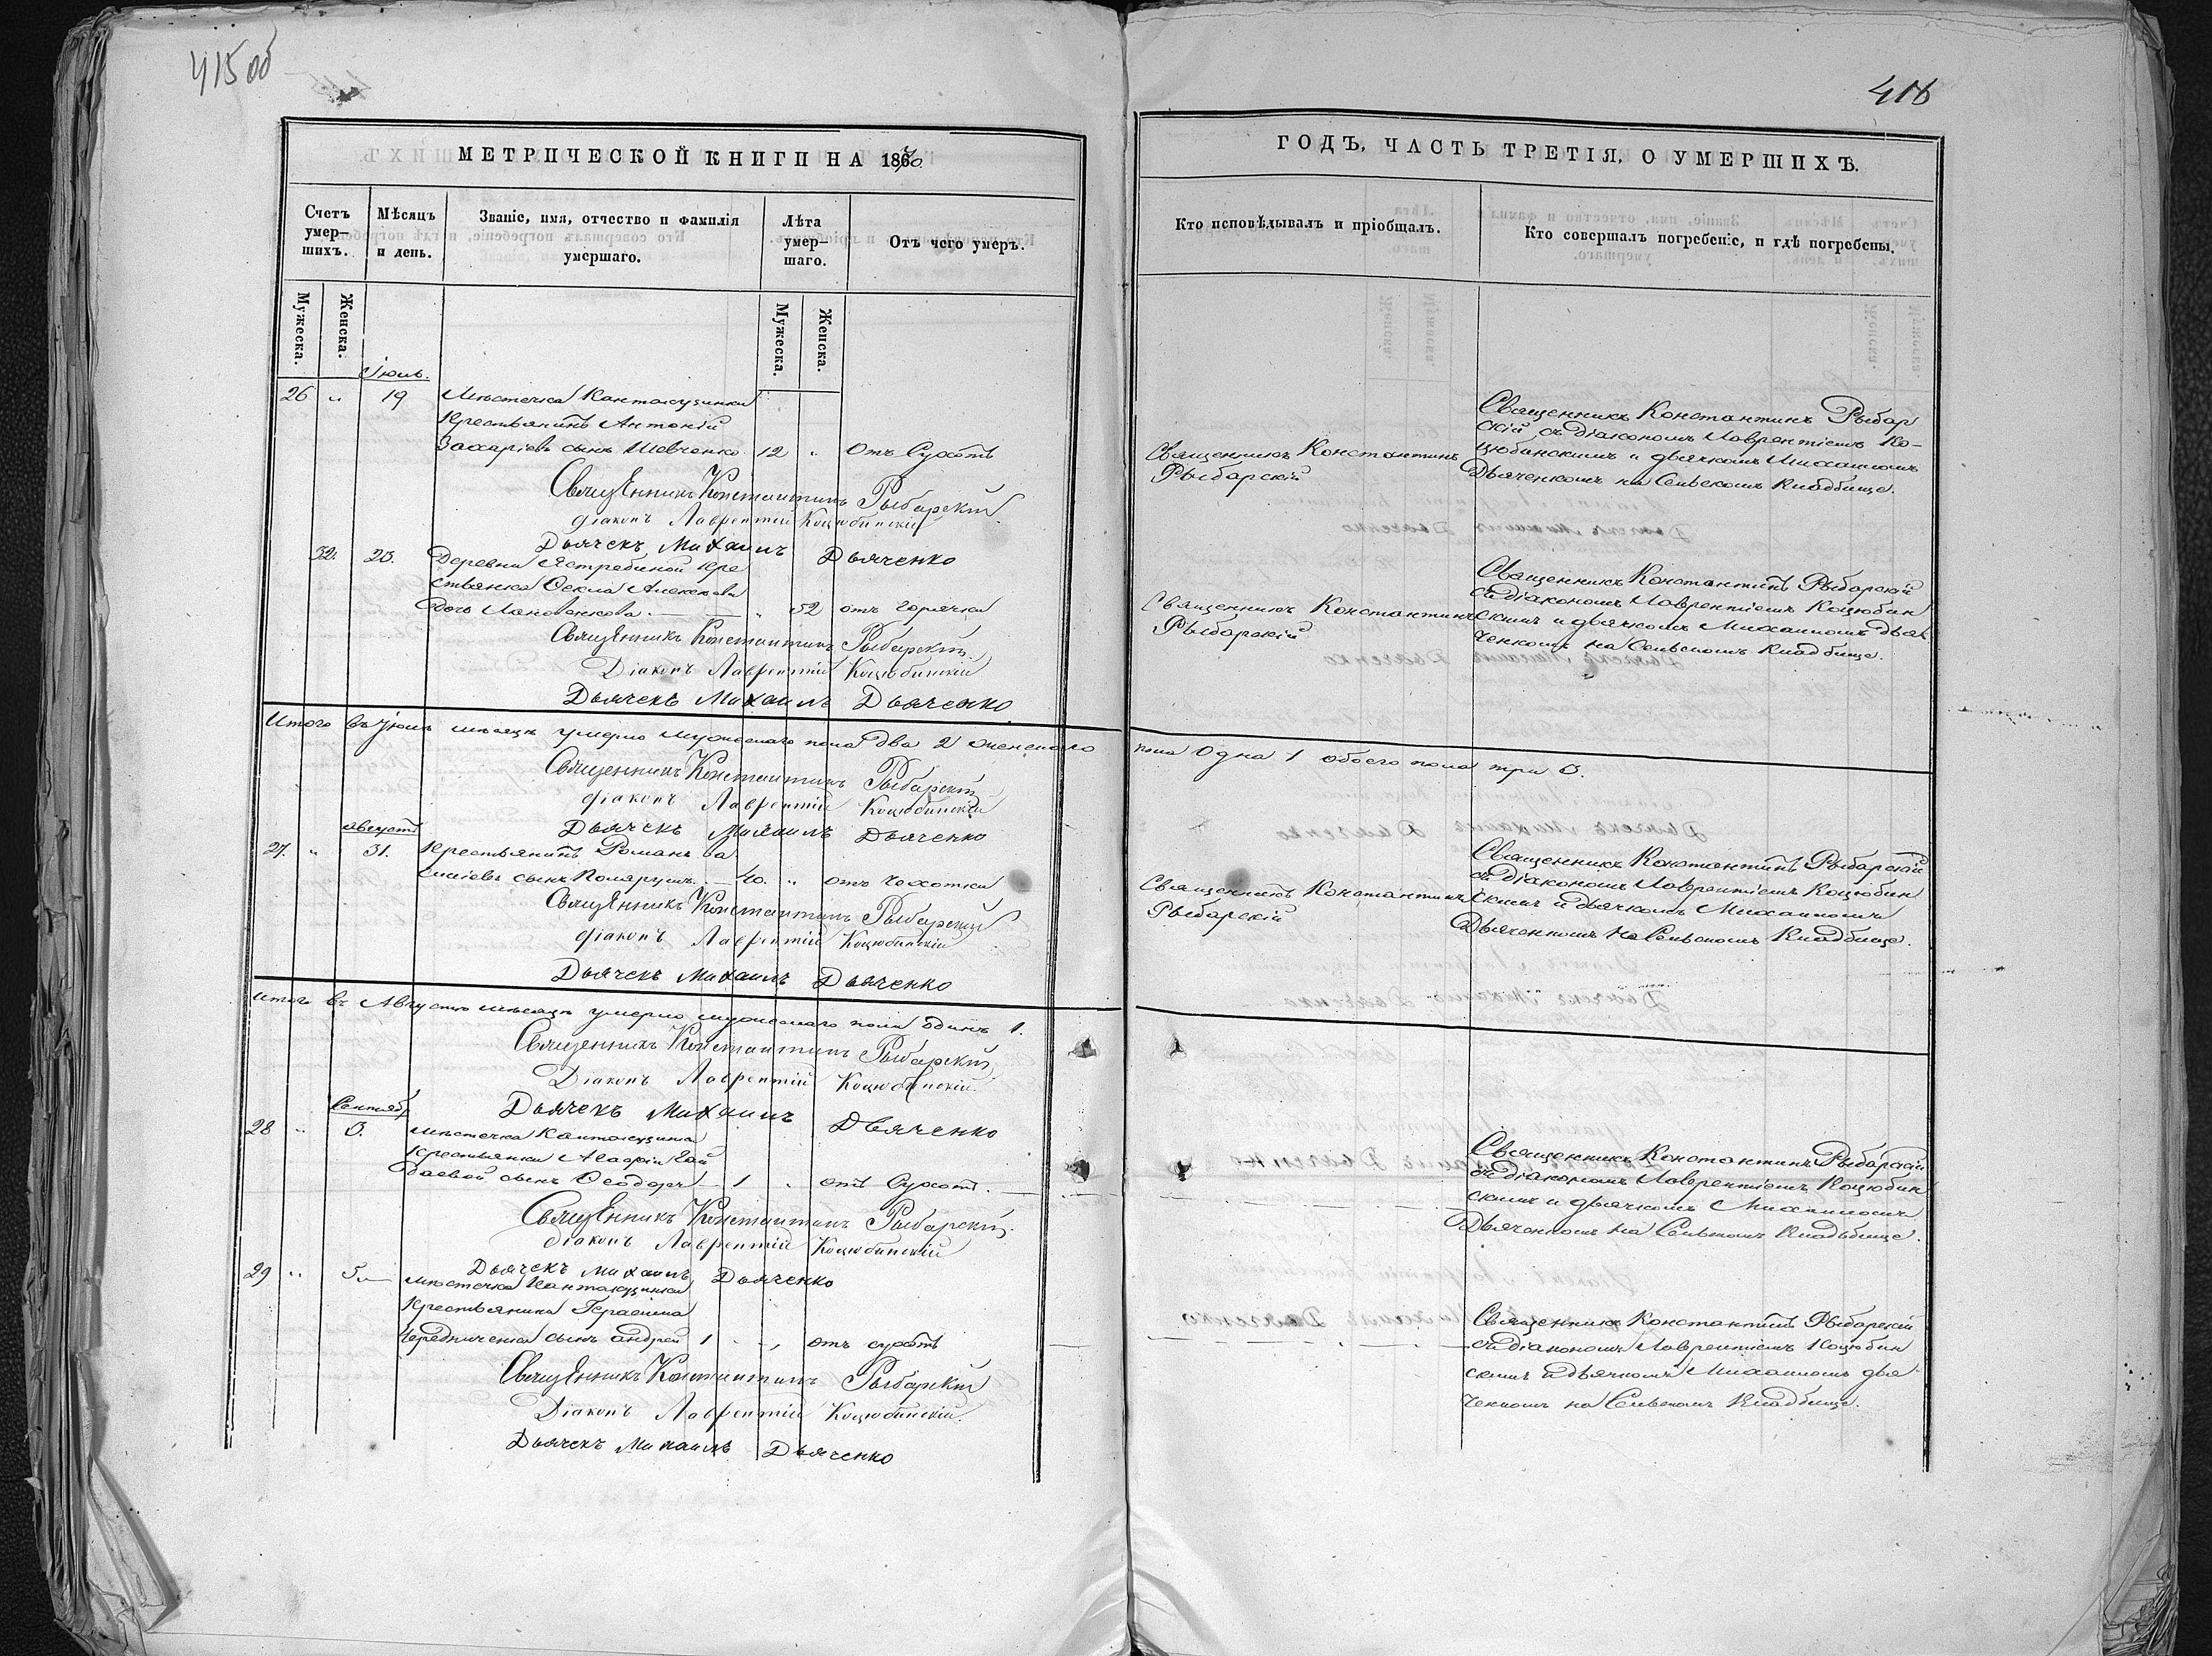 415 об
416
МЕТРИЧЕСКОЙ КНИГИ НА 1870
ГОДЪ, ЧАСТЬ ТРЕТІЯ, О УМЕРШИХЪ.
Счетъ умер-шихъ.
Мѣсяцъ и день.
Званіе, имя, отчество и фамилія умершаго.
Лѣта умер-шаго.
Отъ чего умеръ.
Кто исповѣдывалъ и пріобщалъ.
Кто совершалъ погребеніе, и гдѣ погребены.
Мужеска.
Женска.
Мужеска.
Женска.
Іюль.
26 " 19 Мѣстечка Кантакузинки
Крестьянинъ Антоній
Захаріевъ сынъ Шевченко 12 " Отъ Сухотъ
Священникъ Константинъ
Рыбарскій
Священникъ Константинъ Рыбар
скій съ діакономъ Лаврентіемъ Ко-
цюбинскимъ и дьячкомъ Михаиломъ
Дьяченкомъ на Сельскомъ Кладбище.
Священникъ Константинъ Рыбарскій
діаконъ Лаврентій Коцюбинскій
Дьячекъ Михаилъ Дьяченко
32. 23. Деревни Ястребиной кре
стьянка Ѳекла Алексѣева
дочь 52 отъ горячки
Священникъ Константинъ
Рыбарскій
Священникъ Константинъ Рыбарскій
съ діакономъ Лаврентіемъ Коцюбин
скимъ и дьячкомъ Михаиломъ Дья
ченкомъ на Сельскомъ Кладбище.
Священникъ Константинъ Рыбарскій
Діаконъ Лаврентій Коцюбинскій
Дьячекъ Михаилъ Дьяченко
Итого въ Іюлѣ мѣсяцѣ умерло мужескаго пола два 2 женскаго пола Одна 1 обоего пола три 3.
Священникъ Константинъ Рыбарскій
діаконъ Лаврентій Коцюбинскій
Дьячекъ Михаилъ Дьяченко
Августъ
27. " 31. Крестьянинъ Романъ Ва
силіевъ сынъ 40. " отъ чахотки
Священникъ Константинъ
Рыбарскій
Священникъ Константинъ Рыбарскій
съ діакономъ Лаврентіемъ Коцюбин
скимъ и дьячкомъ Михаиломъ
Дьяченкомъ на Сельскомъ Кладбище.
Священникъ Константинъ Рыбарскій
діаконъ Лаврентій Коцюбинскій
Дьячекъ Михаилъ Дьяченко
Итого въ Августѣ мѣсяцѣ умерло мужескаго пола одинъ 1.
Священникъ Константинъ Рыбарскій
Діаконъ Лаврентій Коцюбинскій
Дьячекъ Михаилъ Дьяченко
Сентябр
28 " 3. Мѣстечка Кантакузинка
Крестьянки
сынъ Ѳеодоръ 1 " отъ Сухот.
Священникъ Константинъ Рыбарскій
съ діакономъ Лаврентіемъ Коцюбин
скимъ и дьячкомъ Михаиломъ
Дьяченкомъ на Сельскомъ Кладбище.
Священникъ Константинъ Рыбарскій
діаконъ Лаврентій Коцюбинскій
Дьячекъ Михаилъ Дьяченко
29 " 5 Мѣстечка Кантакузинки
Крестьянина Герасима
Чередниченка сынъ андрей 1 отъ сухотъ
Священникъ Константинъ Рыбарскій
съ діакономъ Лаврентіемъ Коцюбин
скимъ и дьячкомъ Михаиломъ Дья
ченкомъ на Сельскомъ Кладбище.
Священникъ Константинъ Рыбарскій
Діаконъ Лаврентій Коцюбинскій.
Дьячекъ Михаилъ Дьяченко